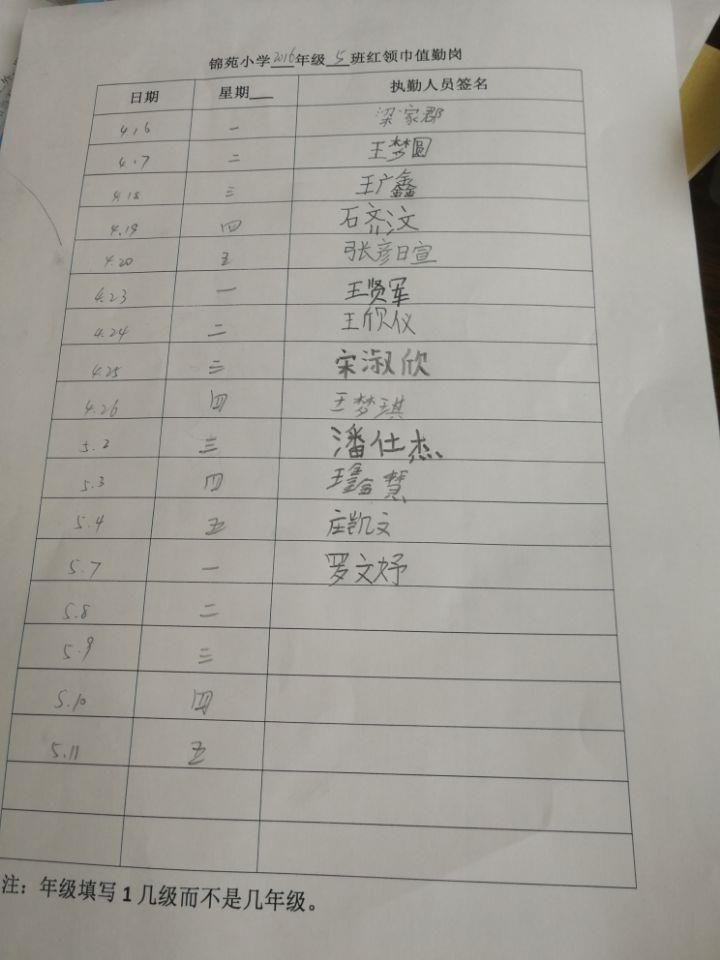 锦苑小学2016年级5班红领巾值勤岗
日期 星期 执勤人员签名
4.16 一 梁家郡
4.17 二 王梦圆
4.18 三 王广鑫
4.19 四 石齐汶
4.20 五 张彦日宣
4.23 一 王贤军
4.24 二 王欣仪
4.25 三 宋淑欣
4.26 四 王梦琪
5.2 三 潘仕杰
5.3 四 慧
5.4 五 庄凯文
5.7 一 罗文妤
5.8 二
5.9 三
5.10 四
5.11 五
注：年级填写1几级而不是几年级。